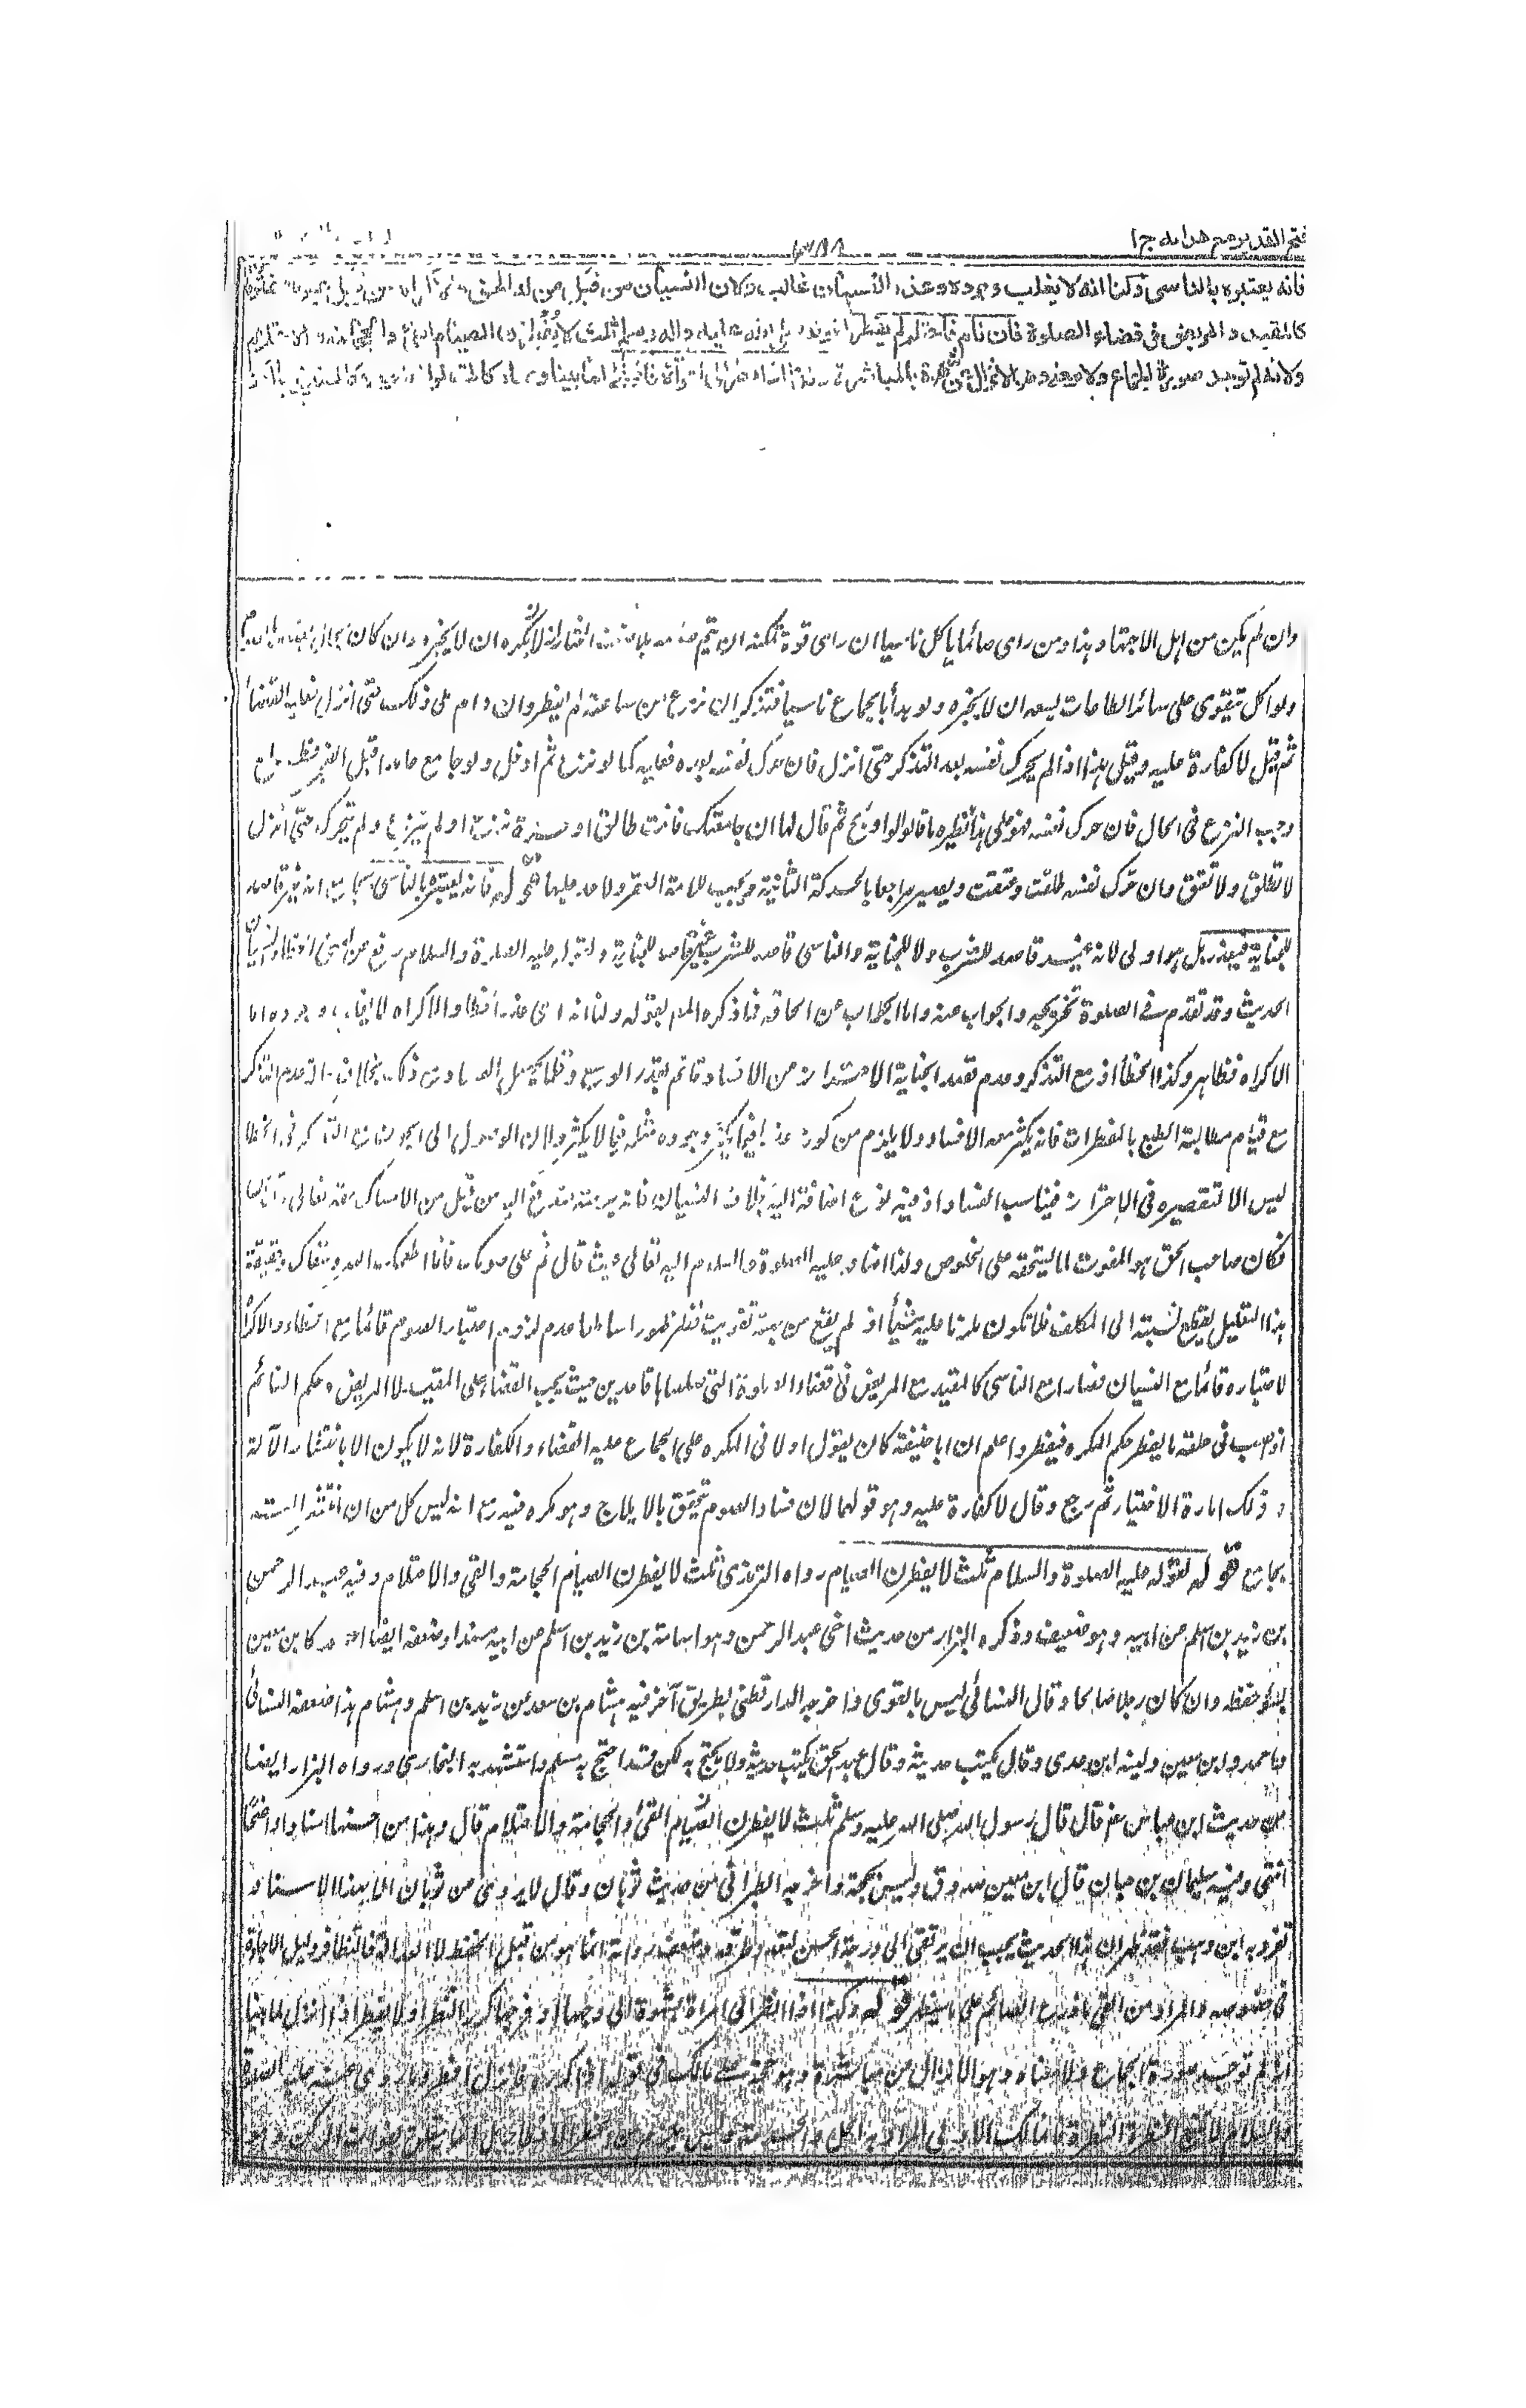 فتح القدير مع هدايه ج ١
فانه يعتبره بالناسي ولنا انه لا يغلب وجوده وعذر النسيان غالب ولان النسيان من قبل من له الحق
كالمقيد والمريض في قضاء الصلوة فان نام فاحتلم لم يفطر لقوله صلى الله عليه واله وسلم ثلث لا يفطرن الصيام
ولانه لم توجد صورة الجماع ولا معناه وهو الانزال عن شهوة بالمباشرة وكذا اذا نظر الى امرأة فامنى لما بينا وصار كالمتفكر اذا امنى وكالمستمني بالكف
وان لم يكن من اهل الاجتهاد هذا ومن راى صائما ياكل ناسيا ان راى قوة تمكنه ان يتم صومه بلا ضعف المختار انه يكره ان لا يخبره وان كان بحال يضعف بالصوم
ولو اكل يتقوى على سائر الطاعات يسعه ان لا يخبره ولو بدأ بالجماع ناسيا فتذكر ان نزع من ساعته لم يفطر وان دام على ذلك حتى انزل فعليه القضاء
ثم قيل لا كفارة عليه وقيل هذا اذا لم يحرك نفسه بعد التذكر حتى انزل فان حرك نفسه بعده فعليه كما لو نزع ثم ادخل ولو جامع عامدا قبل الفجر وطلع
وجب النزع في الحال فان حرك نفسه فهو على هذا نظيره ما قالوا لو اولج ثم قال لها ان جامعتك فانت طالق او حرة ان نزع او لم ينزع ولم يتحرك حتى انزل
لا تطلق ولا تعتق وان حرك نفسه طلقت وعتقت ويصير مراجعا بالحركة الثانية ويجب للامة العقر ولا حد عليها قوله فانه يعتبره بالناسي بجامع انه غير قاصد
للجناية فيعذر بل هو اولى لانه غير قاصد للشرب ولا للجناية والناسي قاصد للشرب غير قاصد للجناية ولقوله عليه الصلوة والسلام رفع عن امتي الخطاء والنسيان
الحديث وقد تقدم في الصلوة تخريجه والجواب عنه واما الجواب عن الحاقه فما ذكره المص بقوله ولنا انه اى عذر الخطا والاكراه لا يغلب وجوده اما
الاكراه فظاهر وكذا الخطأ اذ مع التذكر وعدم قصد الجناية الاحتراز عن الافساد قائم بقدر الوسع وقلما يحصل الفساد مع ذلك بخلاف حالة عدم التذكر
مع قيام مطالبة الطبع بالمفطرات فانه يكثر معه الافساد ولا يلزم من كونه عذرا فيما يكثر وجوده مثله فيما لا يكثر ولان الوصول الى الجوف مع التذكر في الخطا
ليس الا لتقصيره في الاحتراز فيناسب الفساد اذ فيه نوع اضافة اليه بخلاف النسيان فانه برمته مندفع اليه من قبل من الامساك حقه تعالى
فكان صاحب الحق هو المفوت لما يستحقه على الخلوص ولذا اضافه عليه الصلوة والسلام اليه تعالى حيث قال تم على صومك فانما اطعمك الله وسقاك وحقيقة
هذا التعليل يقطع نسبته الى المكلف فلا تكون ملزما عليه شيأ اذ لم يقع من جهته تفويت فظهر ظهورا ساطعا عدم لزوم اعتبار الصوم قائما مع الخطاء والاكراه
لاعتباره قائما مع النسيان فصارا مع الناسي كالمقيد مع المريض في قضاء الصلوة التي صلياها قاعدين حيث يجب القضاء على المقيد لا المريض وحكم النائم
اذا صب في حلقه ما يفطر حكم المكره فيفطر واعلم ان ابا حنيفة كان يقول اولا في المكره على الجماع عليه القضاء والكفارة لانه لا يكون الا بانتشار الآلة
وذلك امارة الاختيار ثم رجع وقال لا كفارة عليه وهو قولهما لان فساد الصوم تتحقق بالايلاج وهو مكره فيه مع انه ليس كل من ان انتشر آلته
يجامع قوله لقوله عليه الصلوة والسلام ثلث لا يفطرن الصيام رواه الترمذي ثلث لا يفطرن الصيام الحجامة والقي والاحتلام وفيه عبد الرحمن
بن زيد بن اسلم عن ابيه وهو ضعيف وذكره البزار من حديث اخى عبد الرحمن وهو اسامة بن زيد بن اسلم عن ابيه مسندا وضعفه ايضا احمد كابن معين
لسوء حفظه وان كان رجلا صالحا وقال النسائى ليس بالقوى واخرجه الدارقطنى بطريق آخر فيه هشام بن سعد عن زيد بن اسلم وهشام هذا ضعفه النسائى
واحمد وابن معين ولينه ابن عدى وقال يكتب حديثه وقال عبد الحق يكتب حديثه ولا يحتج به لكن قد احتج به مسلم واستشهد به البخارى ورواه البزار ايضا
من حديث ابن عباس رض قال قال رسول الله صلى الله عليه وسلم ثلث لا يفطرن الصيام القئ والحجامة والاحتلام قال وهذا من احسنها اسنادا واصحها
انتهى وفيه سليمان بن حبان قال ابن معين صدوق وليس بحجة واخرجه الطبرانى من حديث ثوبان وقال لا يروى عن ثوبان الا بهذا الاسناد
تفرد به ابن وهب فقد ظهر ان هذا الحديث يجب ان يرتقى الى درجة الحسن لتعدد طرقه وضعف رواته انما هو من قبل الحفظ لا العدالة فالتظافر دليل الاجادة
في خصوصه والمراد من القى ما ذرع الصائم على ما سيظهر قوله وكذا اذا نظر الى امرأة بشهوة الى وجهها او فرجها كرر النظر او لا لا يفطر اذا انزل لما بينا
انه لم توجد صورة الجماع ولا معناه وهو الانزال عن مباشرة وهو حجة على مالك في قوله اذا كرره فانزل افطر وما روى عنه عليه الصلوة
والسلام لا تتبع النظرة النظرة فانما لك الاولى المراد به الحل والحرمة وليس